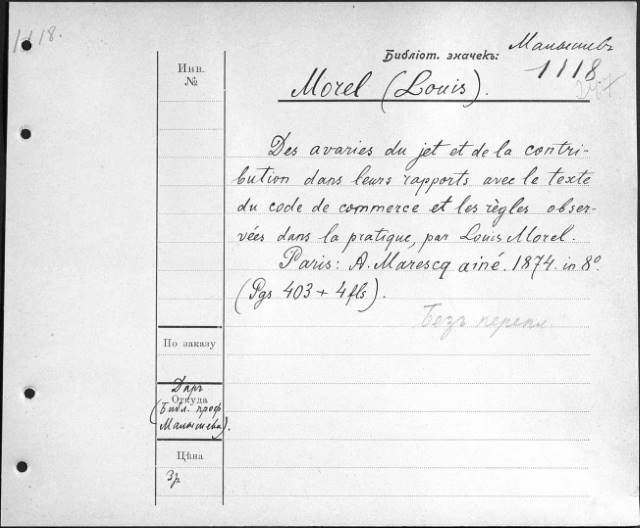 1118.
Малышевъ
Библіот. значекъ:
1118
Инв.
№
Morel (Louis).
Des avaries du jet et de la contri-
bution dans leurs rapports avec le texte
du code de commerce et les règles obser-
vées dans la pratique, par Louis Morel.
Paris: A. Marescq ainé. 1874. in 8º.
(Pgs 403 + 4 fls).
Безъ перепл.
По заказу
Даръ
Откуда
(Библ. проф.
Малышева).
Цѣна
3р